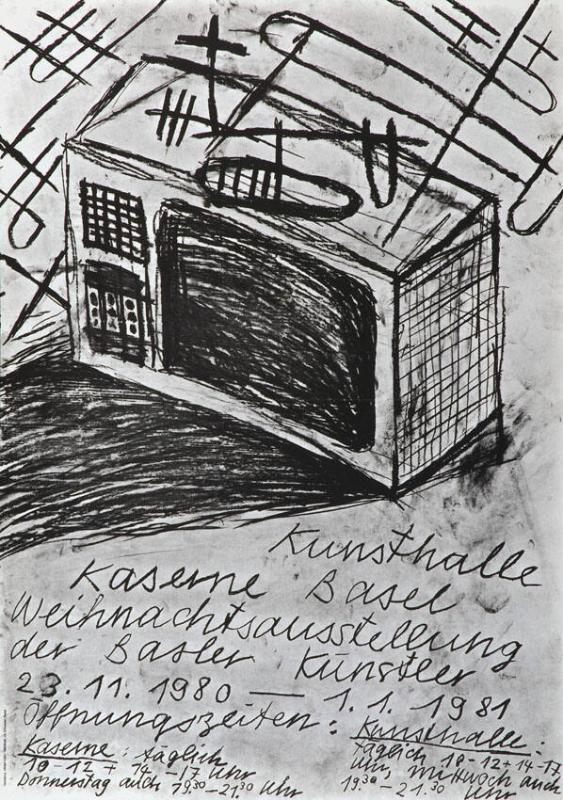 Kunsthalle
Kaserne Basel
Weihnachtsausstellung
der Basler Künstler
23.11.1980 — 1.1.1981
Öffnungszeiten:
Kaserne: täglich
10-12 + 14-17 Uhr
Donnerstag auch 19.30-21.30 Uhr
Kunsthalle:
täglich 10-12+14-17
Uhr, Mittwoch auch
19.30-21.30 Uhr